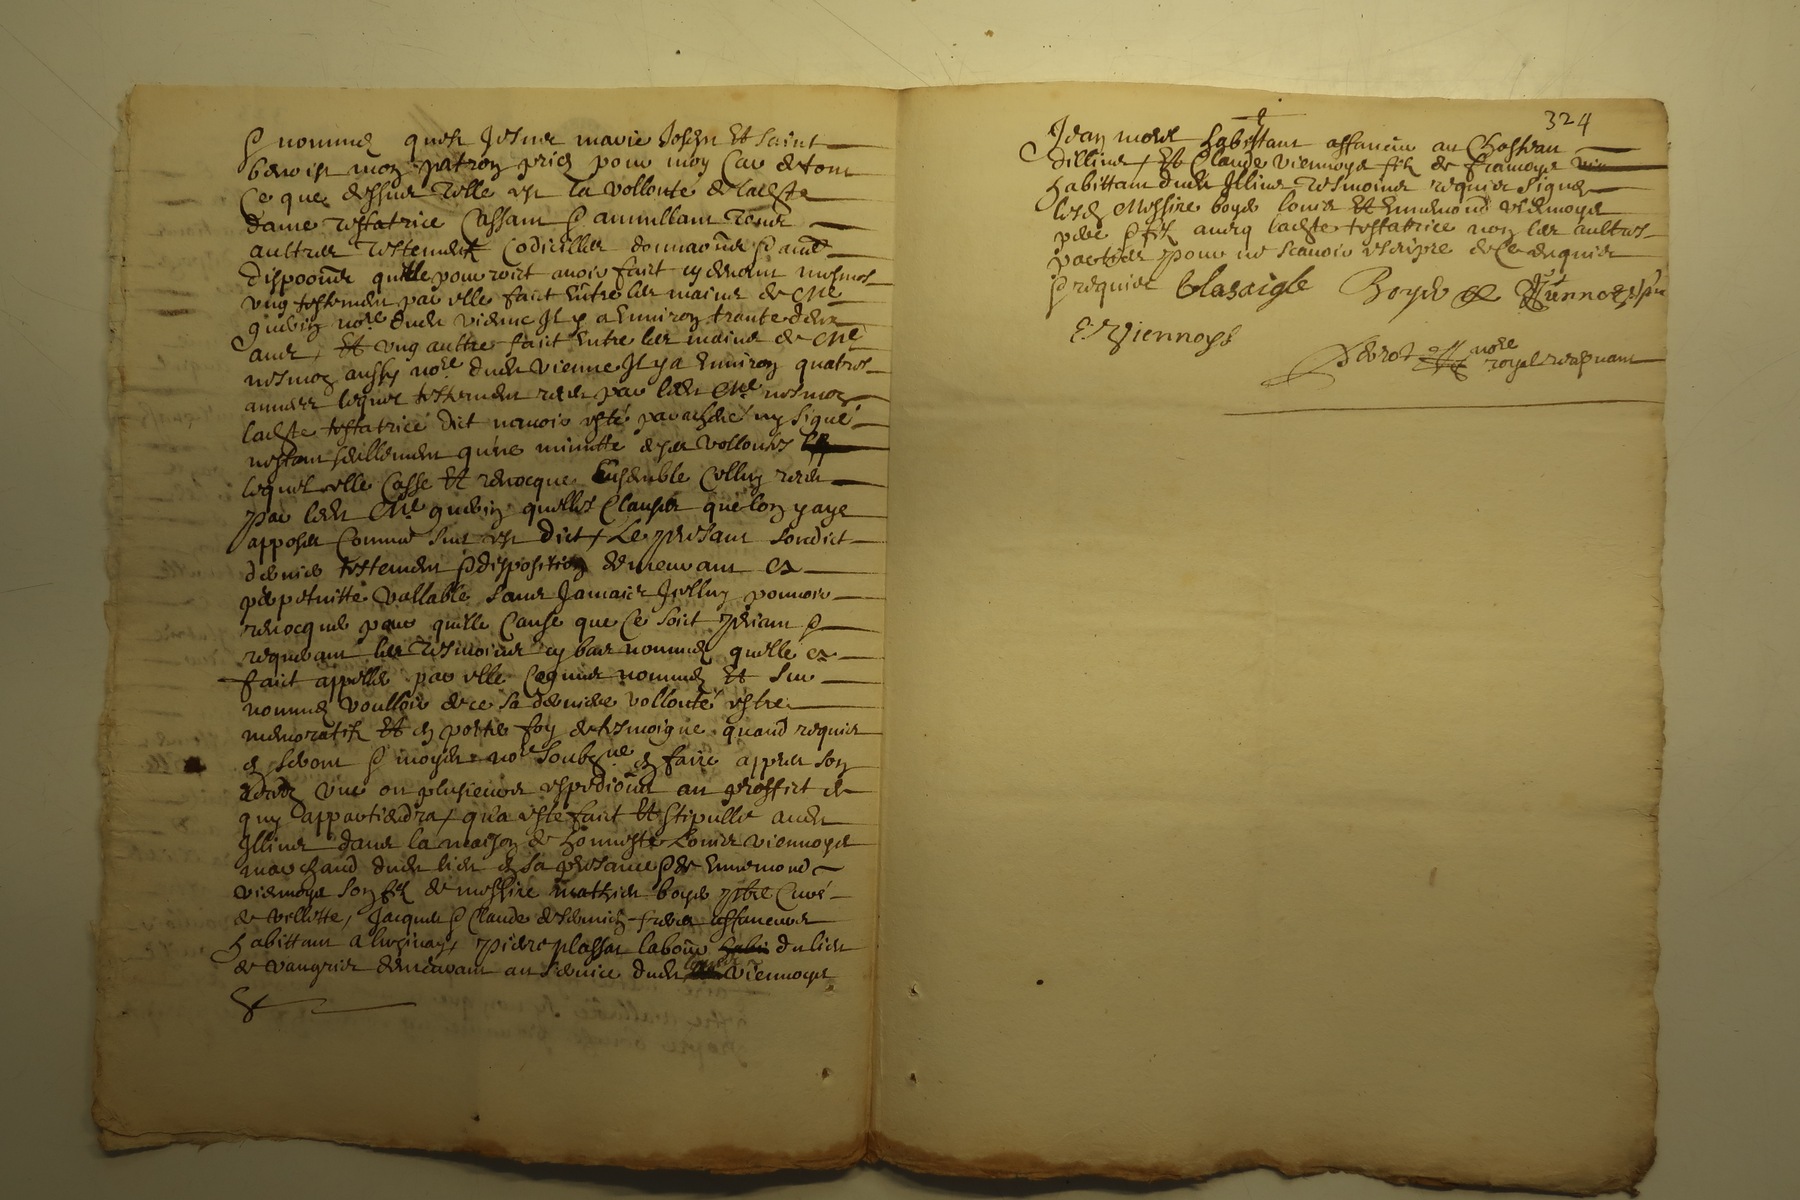 & nommes quest Jesus marie Joseph Et saint
benoist mon patron pries pour moy Car de tout
Ce que dessus Telle est la vollonte de ladte
dame testatrice Cassant & annullant Tous
aultres testements Codicilles donnaõns & aut
dispoõns quelle pourroict avoir faict cy devant mesmes
ung testement par elle faict Entre les mains de Me
nore dudit vienne Il y a Environ trante deux
ans, Et ung aultre faict Entre les mains de Me
aussy nore dudit vienne Il y a Environ quatres
annees lequel testement receu par ledit Me
ladte testatrice dict navoir esté parachevé ny signé
nestant seullement quune minutte de ses vollontes
lequel elle Casse Et revocque Ensemble Celluy receu
par ledit Me quelles Clauses que lon y aye
apposer Comme sus est dict, Le presant sondict
dernier testement & disposition demeurant en
perpetuitte vallable sans Jamais Icelluy pouvoir
revocquer pour quelle Cause que Ce soict priant &
requerant les Tesmoins cy bas nommes quelle a
faict appeller par elle Cogneus nommes Et sur
nommes voulloir de ce sa derniere vollonté estre
memoratifs Et en porter foy de tesmoigne quand requis
en seront & moyder nore soubzne en faire appres son
deces une ou plusieurs expediõns au proffict de
quy appartiendra, qua este faict Et stipulle audit
Illins dans la maison de honneste Louis viennoys
marchand dudit lieu en sa presance & de Ennemond
viennoys son filz de messire mathieu boyer pbre Curé
de villette, Jacques & Claude freres affaneurs
habittant a luzinay, pierre plassat labour du lieu
de vaugris demeurant au service dudit louis viennoys
&
324
Jean morel habittant affaneur au Chasteau
dillins, Et Claude viennoys filz de francoys
habittant dudit Illins Tesmoins requis signes
lesd Messire boyer louis Et Ennemond viennoys
pere & filz aveq ladte testatrice non les aultres
parties pour ne scavoir escripre de Ce enquis
& requis blasaigle Boyer
E Viennoys
nore
royal recepvant